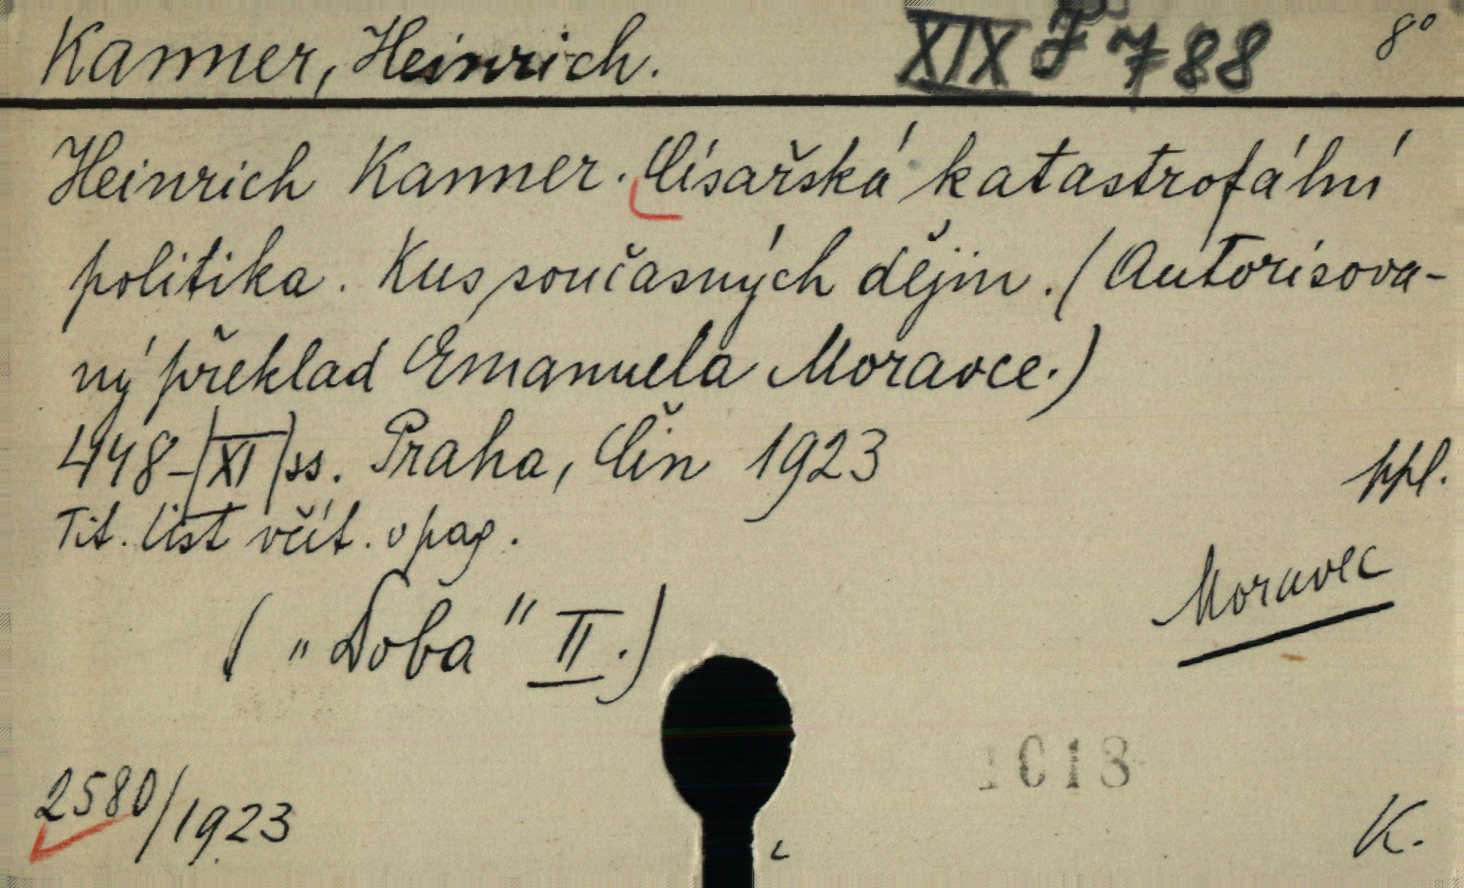 Kanner, Heinrich.
XIX J 788
8°
Heinrich Kanner. Císařská katastrofální
politika. Kus současných dějin. (Autorisova-
ný překlad Emanuela Moravce.)
448-|XI|ss. Praha, Čin 1923
ppl.
Tit. list včít. v pag.
Moravec
( „Doba" II.)
1018
2580/1923
K.